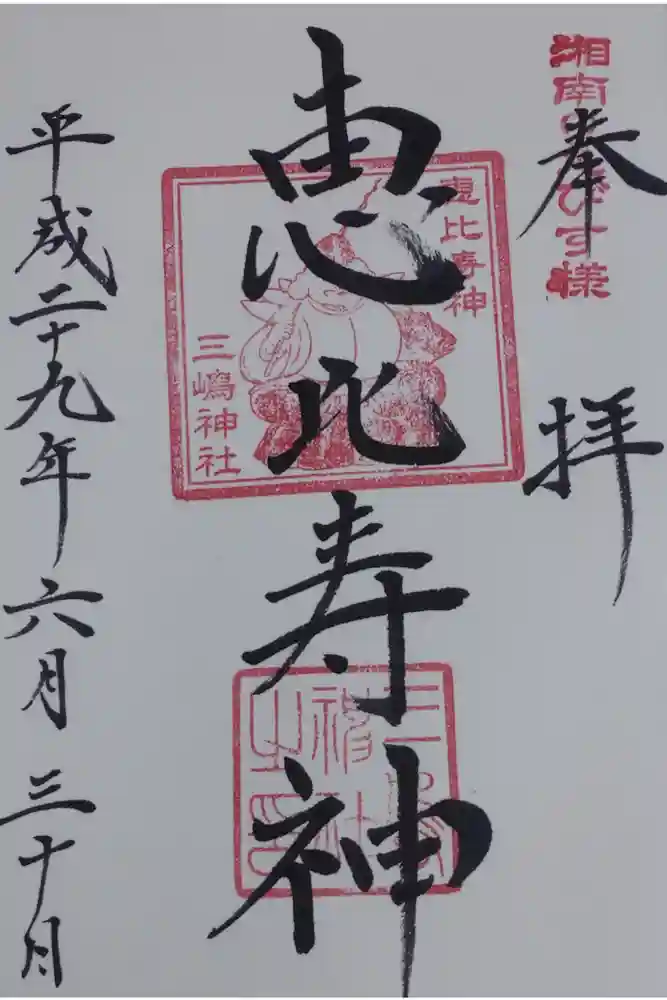 湘南 びす様
奉拝
恵比寿神
恵比寿神
三嶋神社
三嶋神社之印
平成二十九年 六月 三十月